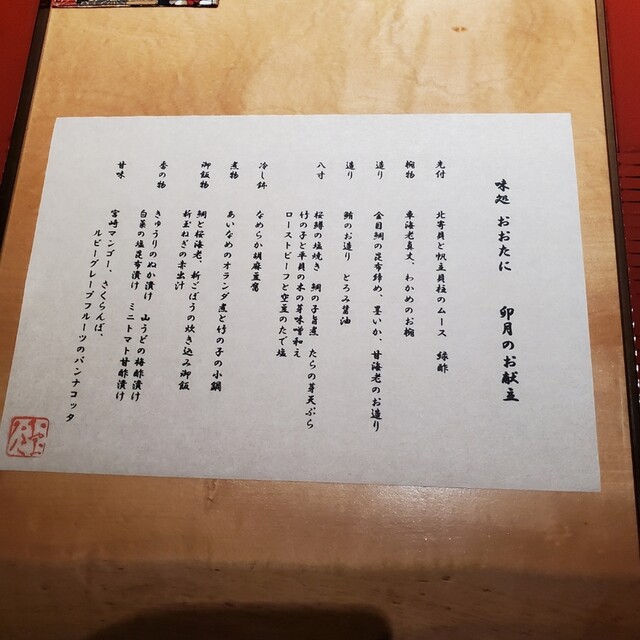 味処 おおたに 卯月のお献立
先付 北寄貝と帆立貝柱のムース 緑酢
椀物 車海老真丈、わかめのお椀
造り 金目鯛の昆布締め、墨いか、甘海老のお造り
造り 鮪のお造り とろみ醤油
八寸 桜鱒の塩焼き 鯛の子旨煮 たらの芽天ぷら
竹の子と平貝の木の芽味噌和え
ローストビーフと空豆のたで塩
冷し鉢 なめらか胡麻豆腐
煮物 あいなめのオランダ煮と竹の子の小鍋
御飯物 鯛と桜海老、新ごぼうの炊き込み御飯
新玉ねぎの赤出汁
香の物 きゅうりのぬか漬け 山うどの梅酢漬け
白菜の塩昆布漬け ミニトマト甘酢漬け
甘味 宮崎マンゴー、さくらんぼ、
ルビーグレープフルーツのパンナコッタ